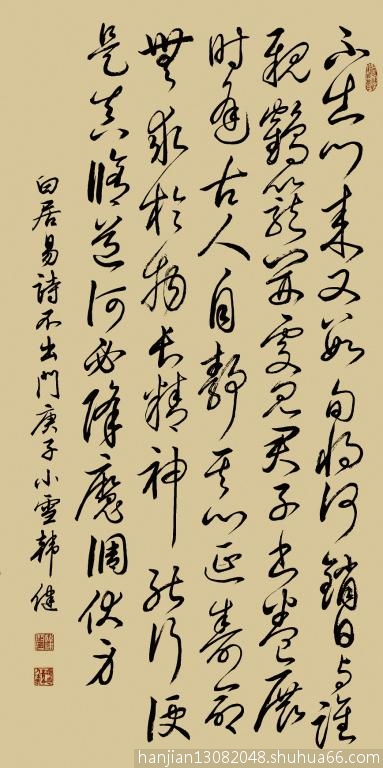 不出门来又数旬将何銷日与谁
親鶴籠開處见君子书卷展
时逢古人自静其心延寿命
無求於物长精神能行便
是真脩道何必降魔调伏身
白居易詩不出門庚子小雪韩健
hanjian13082048.shuhua66.com